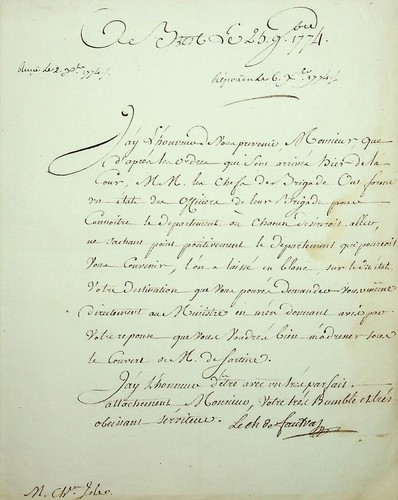 A Brest Le 25. 9bre 1774.
Reçue Le 2. Xbre 1774.
Répondue Le 6. Xbre 1774.
J'ay L'honneur de Vous prevenir Monsieur, que
d'après les ordres qui sont arrivés hier de la
Cour, M.M. les Chefs de Brigade ont formé
un état des Officiers de leur Brigade pour
Connoitre le departement où Chacun desireroit aller,
ne sachant point positivement le departement qui pourroit
Vous Convenir, l'on a laissé en blanc, sur le dit état
Votre destination que Vous pouvés demander Vous même
directement au Ministre en m'en donnant avis par
Votre reponse que Vous Voudrés bien m'adresser sous
le Couvert de M. de Sartine.
J'ay L'honneur d'être avec un très parfait
attachement Monsieur, Votre très humble et très
obeissant serviteur. Le ch. de
M. Ch.er